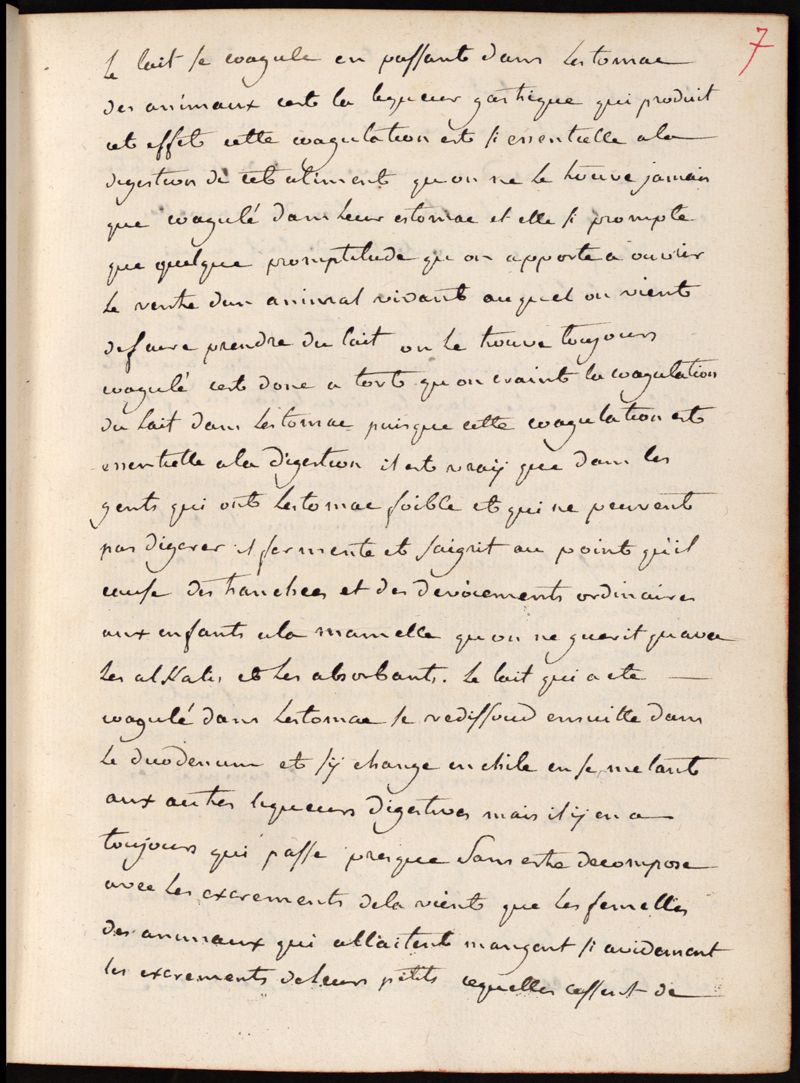 7
Le lait se coagule en passant dans lestomac
des animaux cest la liqueur gastrique qui produit
cet effet cette coagulation est si essentielle a la
digestion de cet aliment quon ne le trouve jamais
que coagulé dans leur estomac et elle si prompte
que quelque promptitude quon apporte a ouvrir
le ventre dun animal vivant auquel on vient
de faire prendre du lait on le trouve toujours
coagulé cest donc a tort quon craint la coagulation
du lait dans lestomac puisque cette coagulation est
essentielle a la digestion il est vraÿ que dans les
gents qui ont lestomac foible et qui ne peuvent
pas digerer il fermente et saigrit au point quil
cause des tranchees et des devoiements ordinaires
aux enfants a la mamelle quon ne guerit quavec
les alkalis et les absorbants. Le lait qui a ete
coagulé dans lestomac se redissoud ensuitte dans
le duodenum et sÿ change en chile en se melant
aux autres liqueurs digestives mais il ÿ en a
toujours qui passe presque sans estre decompose
avec les excrements de la vient que les femelles
des animaux qui allaitent mangent si avidement
les excrements de leurs petits cequelles cessent de